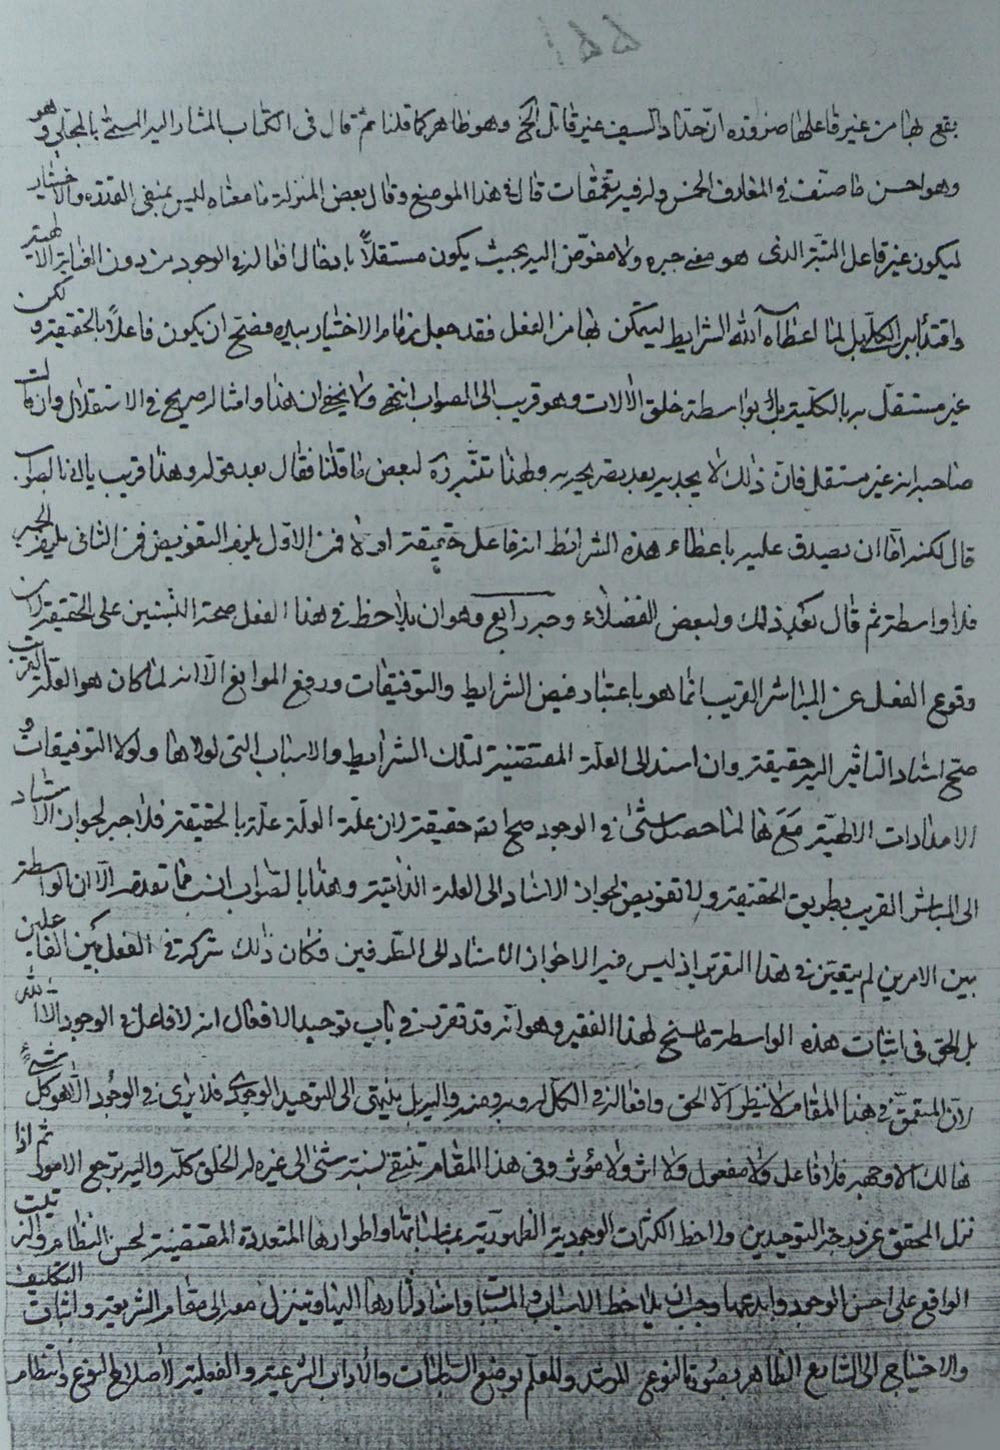 يقع بها من غير فاعلها ضرورة ان حداد السيف غير قاتل الحق وهو ظاهر كما قلنا ثم قال في الكتاب المشار اليه المسمى بالمجلي وهو
وهو احسن ما صنف في المعارف الحسن وله فيه تحقيقات قال في هذا الموضع وقال بعض المنزلة ما معناه ليس بمنفي القدرة والاختيار
ليكون غير فاعل البتة الذي هو معنى جبره ولا مفوض اليه بحيث يكون مستقلا بادخال افعاله في الوجود من دون العناية الالهية
بل لما اعطاه الله الشرايط ليتمكن بها من الفعل فقد جعل زمام الاختيار بيده فصح ان يكون فاعلا بالحقيقة ولكن
غير مستقل به بالكلية بل بواسطة خلق الالات وهو قريب الى الصواب انتهى ولا يخفى ان هذا وامثاله صريح في الاستقلال وان قالت
صاحبه انه غير مستقل فان ذلك لا يجديه بعد تصريحه به ولهذا تنبه رده لبعض ما قلنا فقال بعد قوله وهذا قريب الى الصواب
قال لكنه اما ان يصدق عليه باعطاء هذه الشرائط انه فاعل حقيقة او لا فمن الاول يلزم التفويض ومن الثاني يلزم الجبر
فلا واسطة ثم قال بعد ذلك ولبعض الفضلاء وجه رابع وهو ان يلاحظ في هذا الفعل صحة النسبتين على الحقيقة لان
وقوع الفعل عن المباشر القريب انما هو باعتبار فيض الشرايط والتوفيقات ورفع الموانع الا انه لما كان هو العلة القريبة
صح اسناد التاثير اليه حقيقة وان اسند الى العلة المقتضية لتلك الشرايط والاسباب التي لولاها ولولا التوفيقات و
الامدادات الالهية معها لما حصل شئ في الوجود صح انه حقيقة لان علة العلة علة بالحقيقة فلا جبر لجواز الاسناد
الى المباشر القريب بطريق الحقيقة ولا تفويض لجواز الاسناد الى العلة الذاتية وهذا بالصواب انسب مما تقدمه الا ان الواسطة
بين الامرين لم يتعين في هذا التقرير اذ ليس فيه الا جواز الاسناد الى الطرفين فكان ذلك شركة في الفعل بين الفاعلين
بل الحق في اثبات هذه الواسطة ما سنح لهذا الفقير وهو انه قد تقرر في باب توحيد الافعال انه لا فاعل في الوجود الا الله
لان المتعمق في هذا المقام لا ينظر الا الحق وافعاله في الكل له وبه ومنه واليه بل ينتهي الى التوحيد الوجودي فلا يرى في الوجود الا هو كل شئ
هالك الا وجهه فلا فاعل ولا مفعول ولا اثر ولا مؤثر وفي هذا المقام تنتفي نسبة شئ الى غيره له الخلق كله واليه ترجع الامور ثم اذا
نزل المحقق عن درجة التوحيدين ولاحظ الكثرات الوجودية الظهورية واطوارها المتعددة المقتضية لحسن النظام والترتيب
الواقع على احسن الوجوه وابدعها وجب ان يلاحظ الاسباب والمسببات واسناد آثارها اليها وتنزل معه الى مقام الشريعة واثبات التكليف
والاحتياج الى الشارع الظاهر بصورة النوع المرشد والمعلم بوضع السياسات والآداب الشرعية والفعلية لاصلاح النوع وانتظام